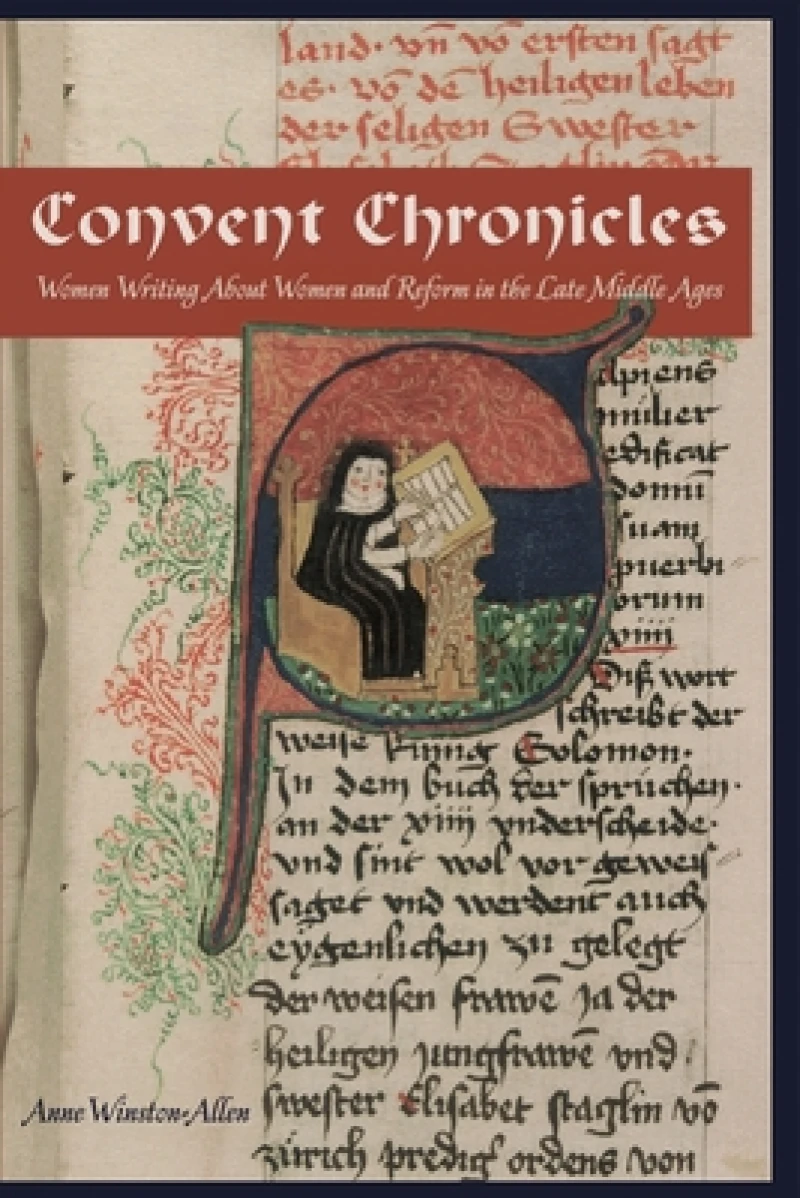 land· vn̄ vō ersten sagt
es· vō dē heiligen leben
der seligen Swester
Convent Chronicles
Women Writing About Women and Reform in the Late Middle Ages
apiens
mulier
edificat
domū
suam
puerbi
orum
xiiii
Diß wort
schreibt der
weise kunig Salomon·
In dem buch der spruchen·
an der xiiii vnderscheide·
vnd sint wol vor geweis
saget vnd werdent auch
eygenlichen zu gelegt
der weisen frawē Ja der
heiligen jungfrawē vnd
Anne Winston-Allen
swester Elisabet staglin vō
zürich predig' ordens von